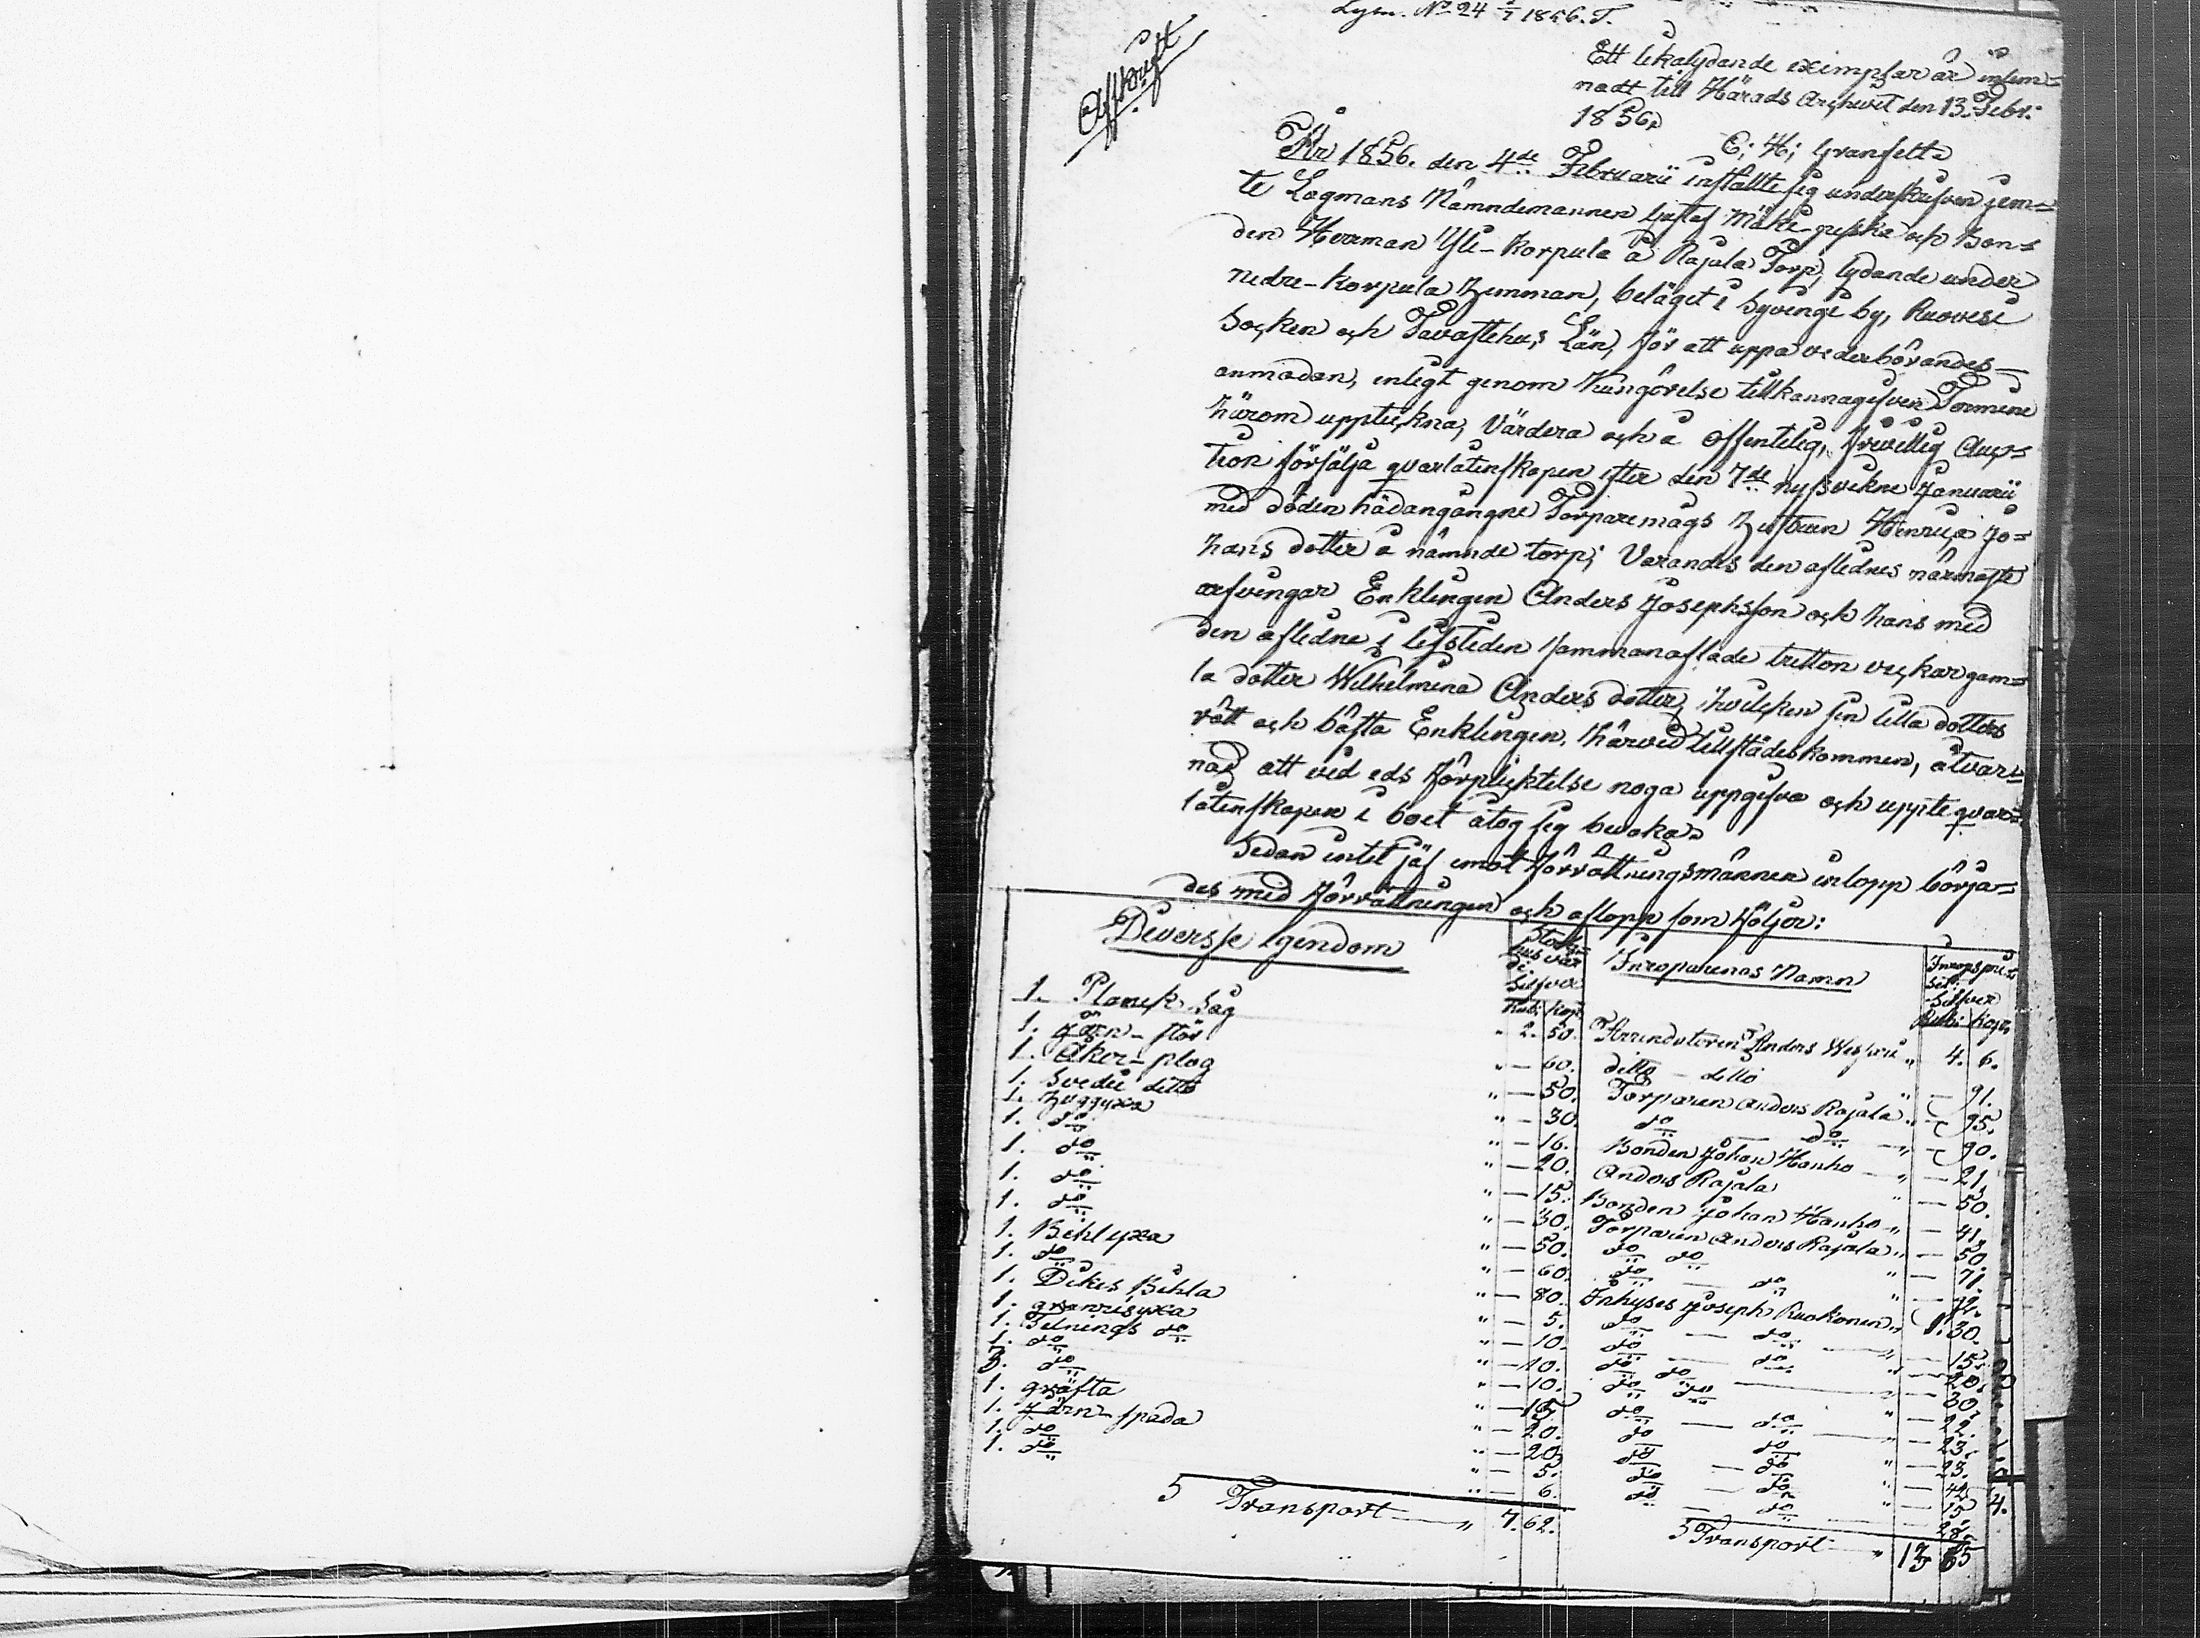 Lysn. No 24 1856. T.
Affskrift
Ett likalydande exemplar är inlem=
nadt till Härads Archivet den 13. Febr:
1856.
C; H; Granfelt.
År 1856. den 4de Februarii inställte sig underskrifven jem=
te Lagmans Nämndemannen Gustaf Mäki-puska och Bon=
den Herrman Yli-Korpula å Rajala Torp, lydande under
nedre-Korpula hemman, beläget i Syvinge by, Ruovesi
Socken och Tavastehus Län, för att uppå vederbörandes
anmodan, enligt genom Kungörelse tillkännagifven Termine
härom uppteckna, Värdera och å offentelig, friivillig Auc=
tion försälja qvarlåtenskapen efter den 7de nyssvikne Januarii
med döden hädangångne Torparemågs hustrun Henrica Jo=
hans dotter å nämnde torp; Varandes den aflednes närmaste
arfvingar Enklingen Anders Josephsson och hans med
den aflidne i lifstiden sammanaflade tretton veckor gam=
la dotter Wilhelmina Anders dotter, hvilcken sin lilla dotters
rätt och bästa Enklingen, härvid tillstädeskommen, åtvar=
nad att vid eds förplicktelse noga uppgifva och uppte qvar=
låtenskapen i boet åtog sig bevaka.
Sedan intet jäf emot förrättningsmännen inlopp börja=
des med förrättningen och aflopp som följer:
Diversse egendom
Inroparenas Namn
Inropspris
Silfver
Rub: Kop.
Silfver
Rub: Kop.
1. Planck Såg " 2. 50. Arrendatoren Anders Wespri " 4. 6.
1. Järn-stör " — 60. ditto — ditto " — 91.
1. Åker-plog " — 50. Torparen Anders Rajala " — 95.
1. Svedie ditto " — 30. do — do " — 90.
1. Huggyxa " — 16. Bonden Johan Hanho — " — 21.
1. do " — 20. Anders Rajala " — 50.
1. do " — 15. Bonden Johan Hanho " — 41.
1. do " — 30. Torparen Anders Rajala " — 50.
1. do " — 50. do do " — 71.
1. Bihlyxa " — 60. do — do " — 72.
1. do " — 80. Inhyses Joseph Ruokonen " 1. 30.
1. Dikes Bihla " — 5. do — do " — 15.
1. granrisyxa " — 10. do — do " — 20.
1. Telnings do " — 10. do do " — 30.
1. do " — 10. do do " — 22.
3. do " — 15. do — do " — 23.
1. gräfta " — 20. do do " — 23.
1. Järn-spada " — 20. do — do " — 42.
1. do " — 5. do — do " — 15.
1. do " — 6. do — do " — 28.
S Transport — " 7. 62. S Transport — " 13 65
4.